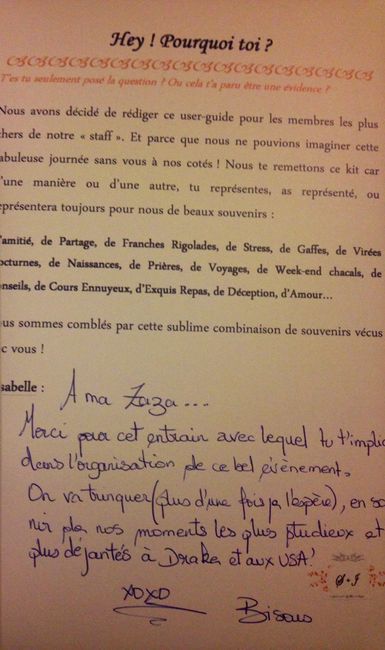 Hey ! Pourquoi toi ?
T'es tu seulement posé la question ? Ou cela t'a paru être une évidence ?
Nous avons décidé de rédiger ce user-guide pour les membres les plus
chers de notre « staff ». Et parce que nous ne pouvions imaginer cette
abuleuse journée sans vous à nos cotés ! Nous te remettons ce kit car
'une manière ou d'une autre, tu représentes, as représenté, ou
eprésentera toujours pour nous de beaux souvenirs :
'amitié, de Partage, de Franches Rigolades, de Stress, de Gaffes, de Virées
octurnes, de Naissances, de Prières, de Voyages, de Week-end chacals, de
onseils, de Cours Ennuyeux, d'Exquis Repas, de Déception, d'Amour...
ous sommes comblés par cette sublime combinaison de souvenirs vécus
c vous !
sabelle : A ma Zaza...
Merci pour cet entrain avec lequel tu t'impliq
dans l'organisation de ce bel évènement.
On va trinquer (plus d'une fois je l'espère), en so
nir de nos moments les plus studieux et
plus déjantés à Draka et aux USA!
S · I
XOXO
Bisous